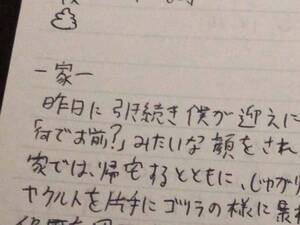 一家一
昨日に引続き僕が迎えに
「何です前?」みたいな顔をされ
家では、帰宅するとともに、じゃがり
ヤクルトを片手にゴツラの様に最